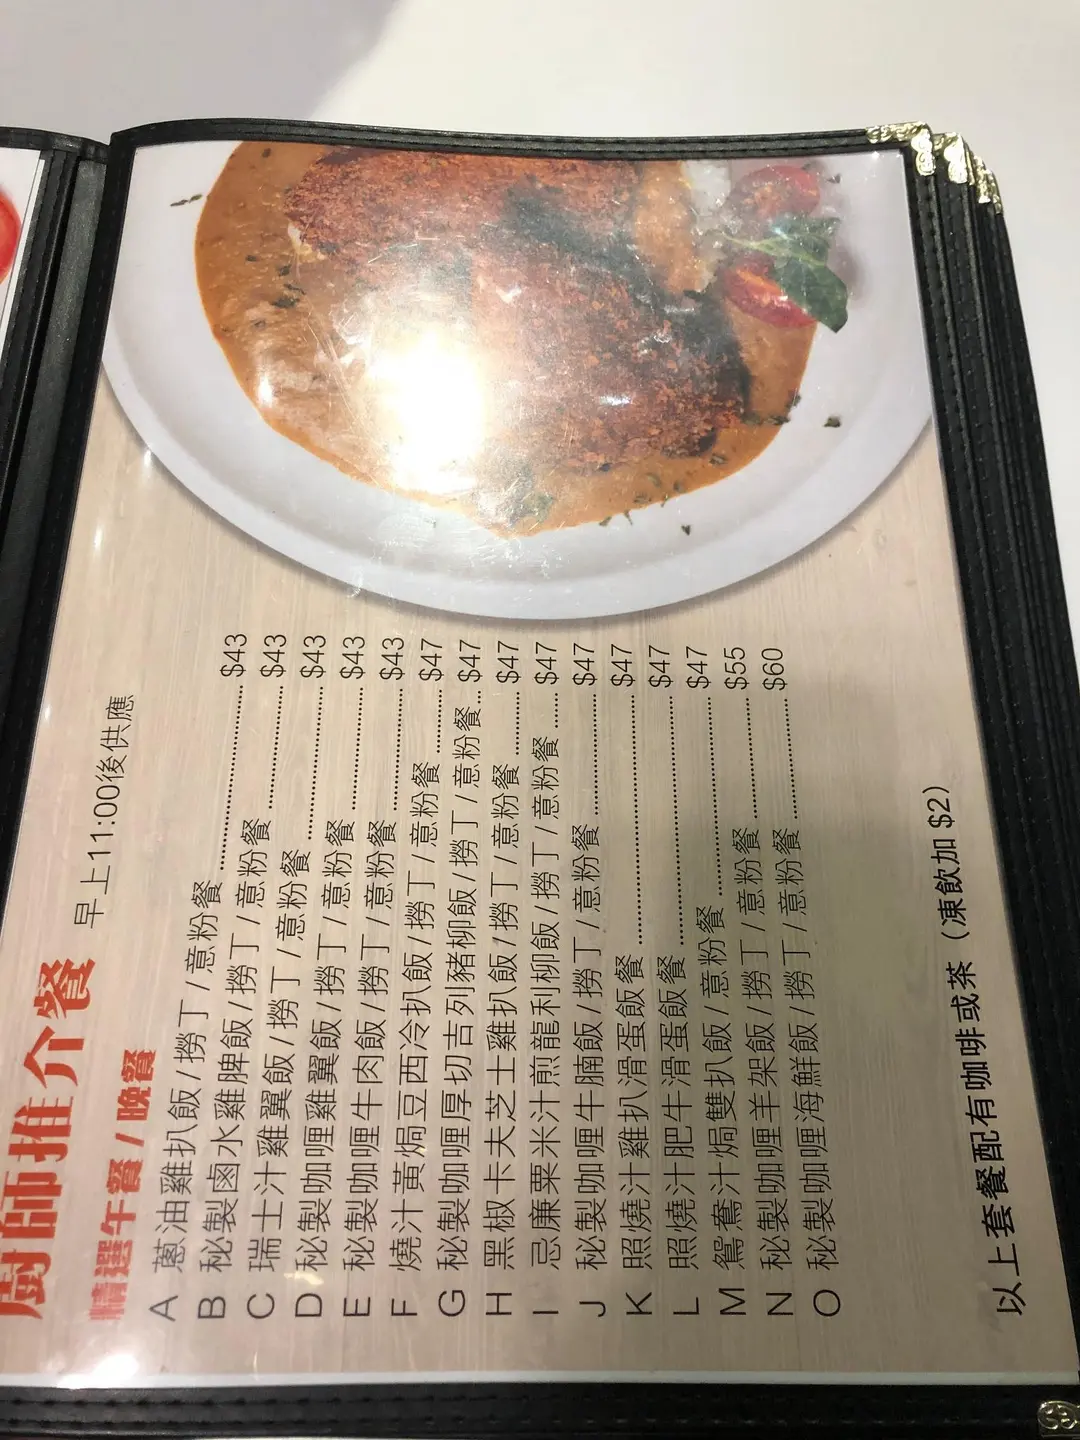 廚師推介餐
精選午餐 / 晚餐 早上11:00後供應
A 蔥油雞扒飯 / 撈丁 / 意粉餐 $43
B 秘製鹵水雞髀飯 / 撈丁 / 意粉餐 $43
C 瑞士汁雞翼飯 / 撈丁 / 意粉餐 $43
D 秘製咖喱雞翼飯 / 撈丁 / 意粉餐 $43
E 秘製咖喱牛肉飯 / 撈丁 / 意粉餐 $43
F 燒汁黃焗豆西冷扒飯 / 撈丁 / 意粉餐 $47
G 秘製咖喱厚切吉列豬柳飯 / 撈丁 / 意粉餐 $47
H 黑椒卡夫芝士雞扒飯 / 撈丁 / 意粉餐 $47
I 忌廉粟米汁煎龍利柳飯 / 撈丁 / 意粉餐 $47
J 秘製咖喱牛腩飯 / 撈丁 / 意粉餐 $47
K 照燒汁雞扒滑蛋飯餐 $47
L 照燒汁肥牛滑蛋飯餐 $47
M 鴛鴦汁焗雙扒飯 / 意粉餐 $47
N 秘製咖喱羊架飯 / 撈丁 / 意粉餐 $55
O 秘製咖喱海鮮飯 / 撈丁 / 意粉餐 $60
以上套餐配有咖啡或茶（凍飲加 $2）